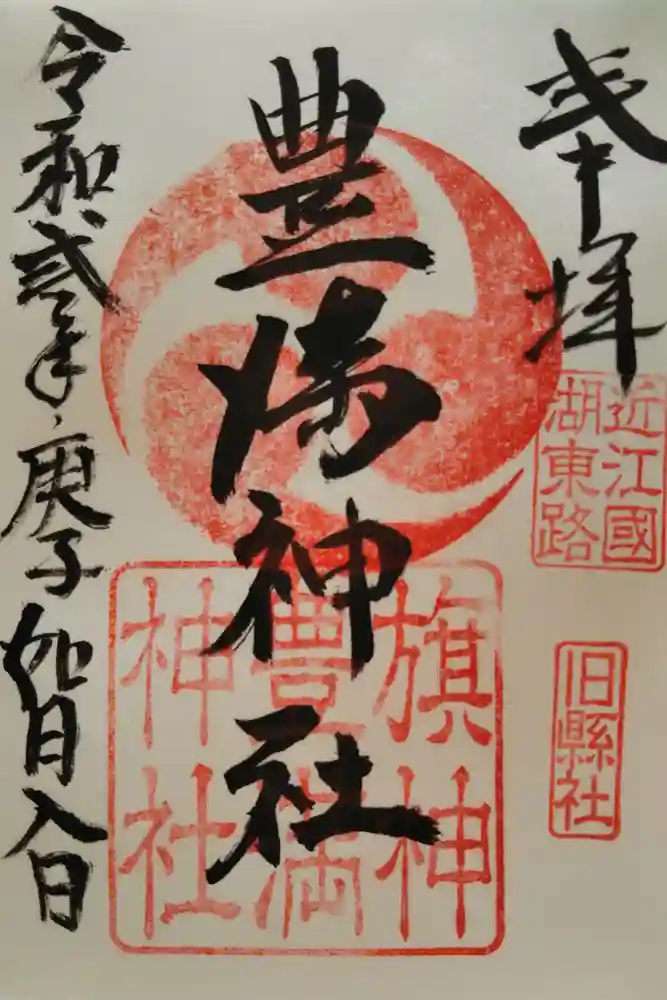 奉拝
近江國
湖東路
旧縣社
豊満神社
旗神
豊満
神社
令和弐年、庚子如月八日